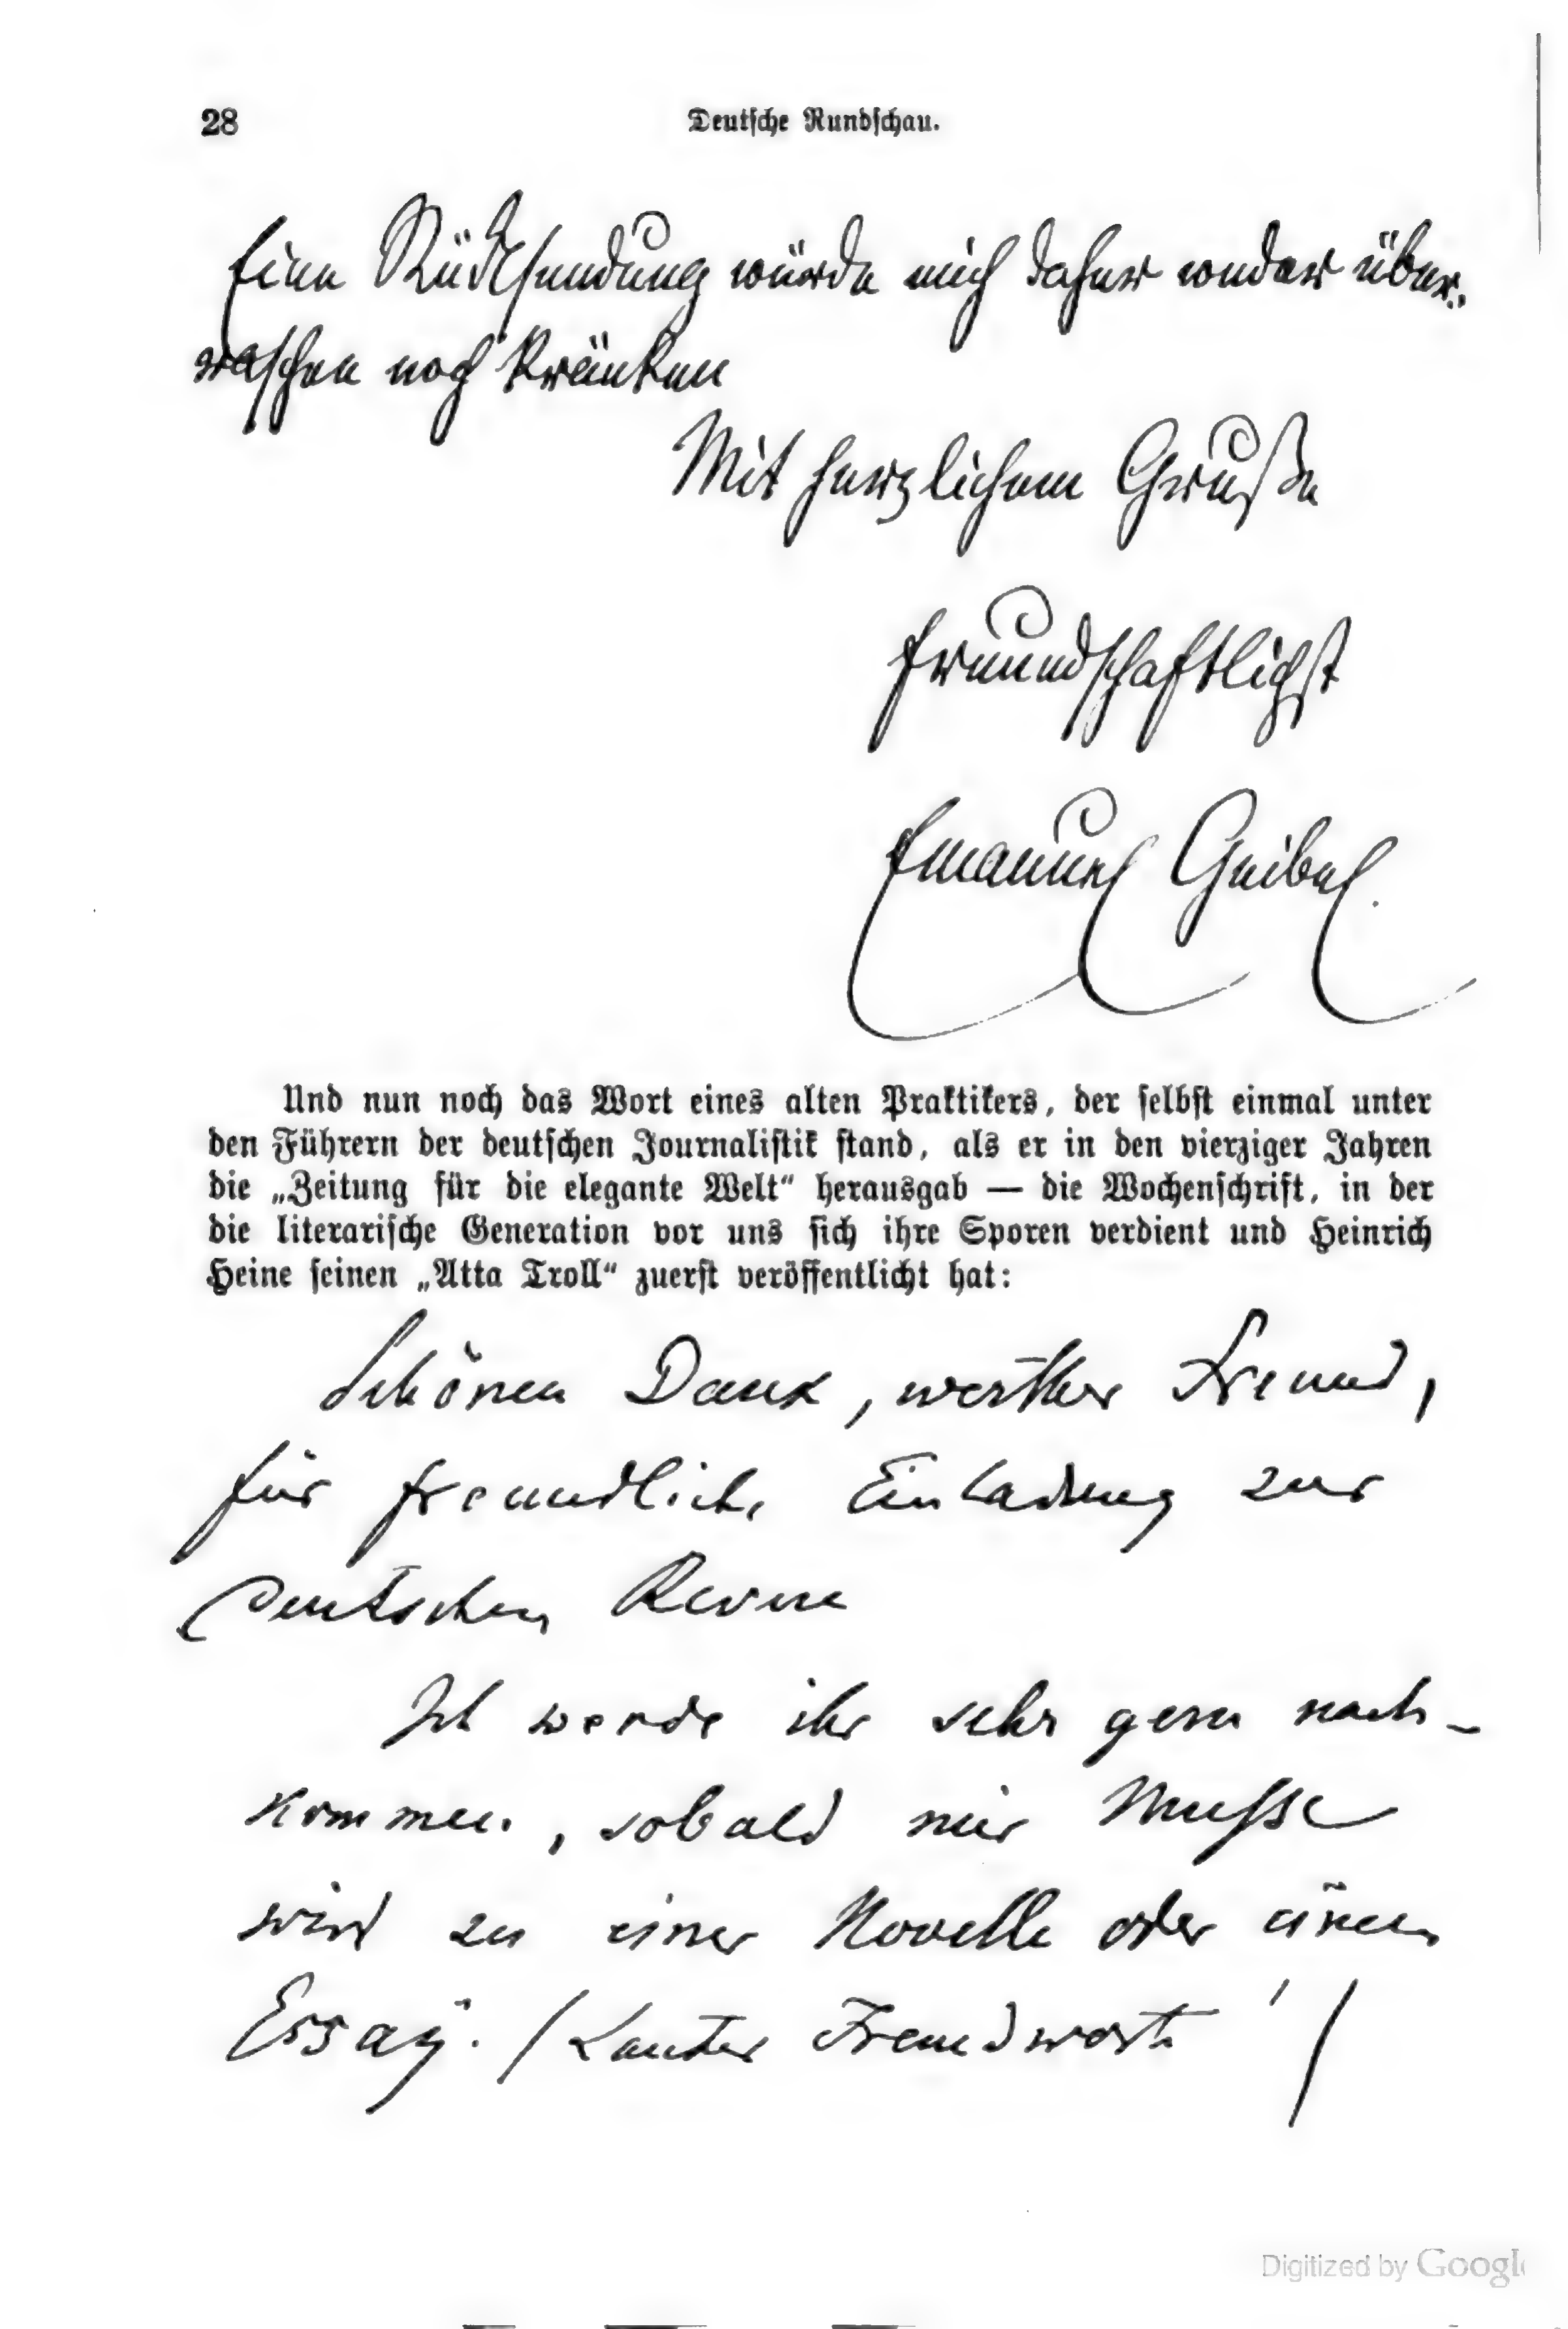 28 Deutsche Rundschau.
Eine Rücksendung würde mich daher weder über-
raschen noch kränken
Mit herzlichem Gruße
freundschaftlichst
Emanuel Geibel.
Und nun noch das Wort eines alten Praktikers, der selbst einmal unter
den Führern der deutschen Journalistik stand, als er in den vierziger Jahren
die „Zeitung für die elegante Welt“ herausgab — die Wochenschrift, in der
die literarische Generation vor uns sich ihre Sporen verdient und Heinrich
Heine seinen „Atta Troll“ zuerst veröffentlicht hat:
Schönen Dank, werther Freund,
für freundliche Einladung zur
Deutschen Revue
Ich werde ihr sehr gern nach-
kommen, sobald mir Musse
wird zu einer Novelle oder einem
Essay. /Lauter Fremdworte!/
Digitized by Google